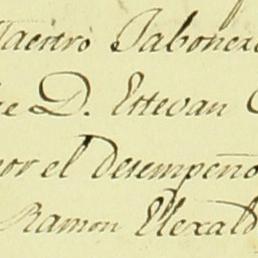 Maestro Jabonero
de D. Estevan
por el desempeño
Ramon Elexald